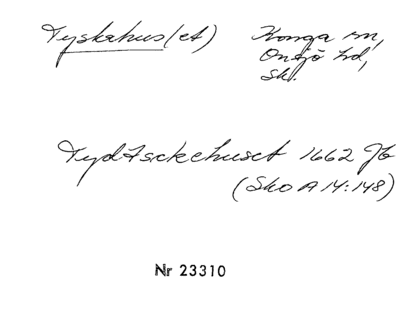 Tyskahus(et) Konga sn,
Onsjö hd,
Sk.
Tydtsckehuset 1662 Jb
(Sko A 14:148)
Nr 23310